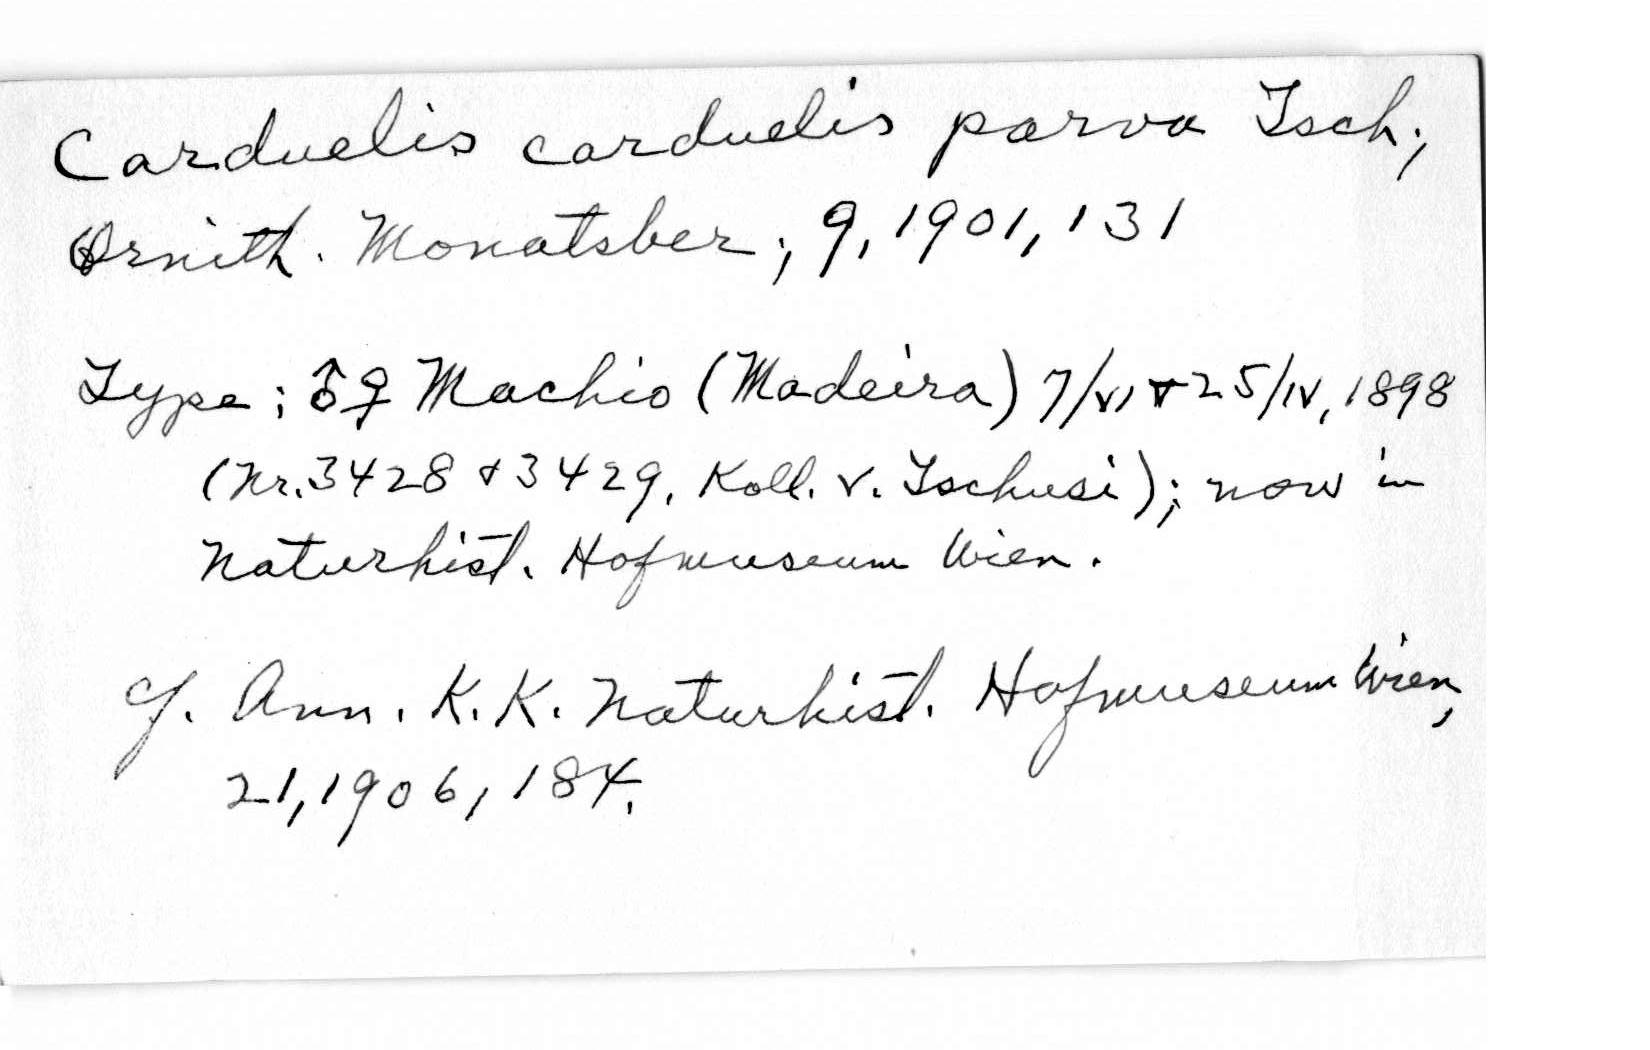 Carduelis carduelis parva Tsch;
Ornith. Monatsber; 9, 1901, 131
Type; ♂♀ Machio (Madeira) 7/VI + 25/IV, 1898
(Nr. 3428 & 3429, Koll. v. Tschusi); now in
Naturhist. Hofmuseum Wien.
cf. Ann. K. K. Naturhist. Hofmuseum Wien,
21, 1906, 184.